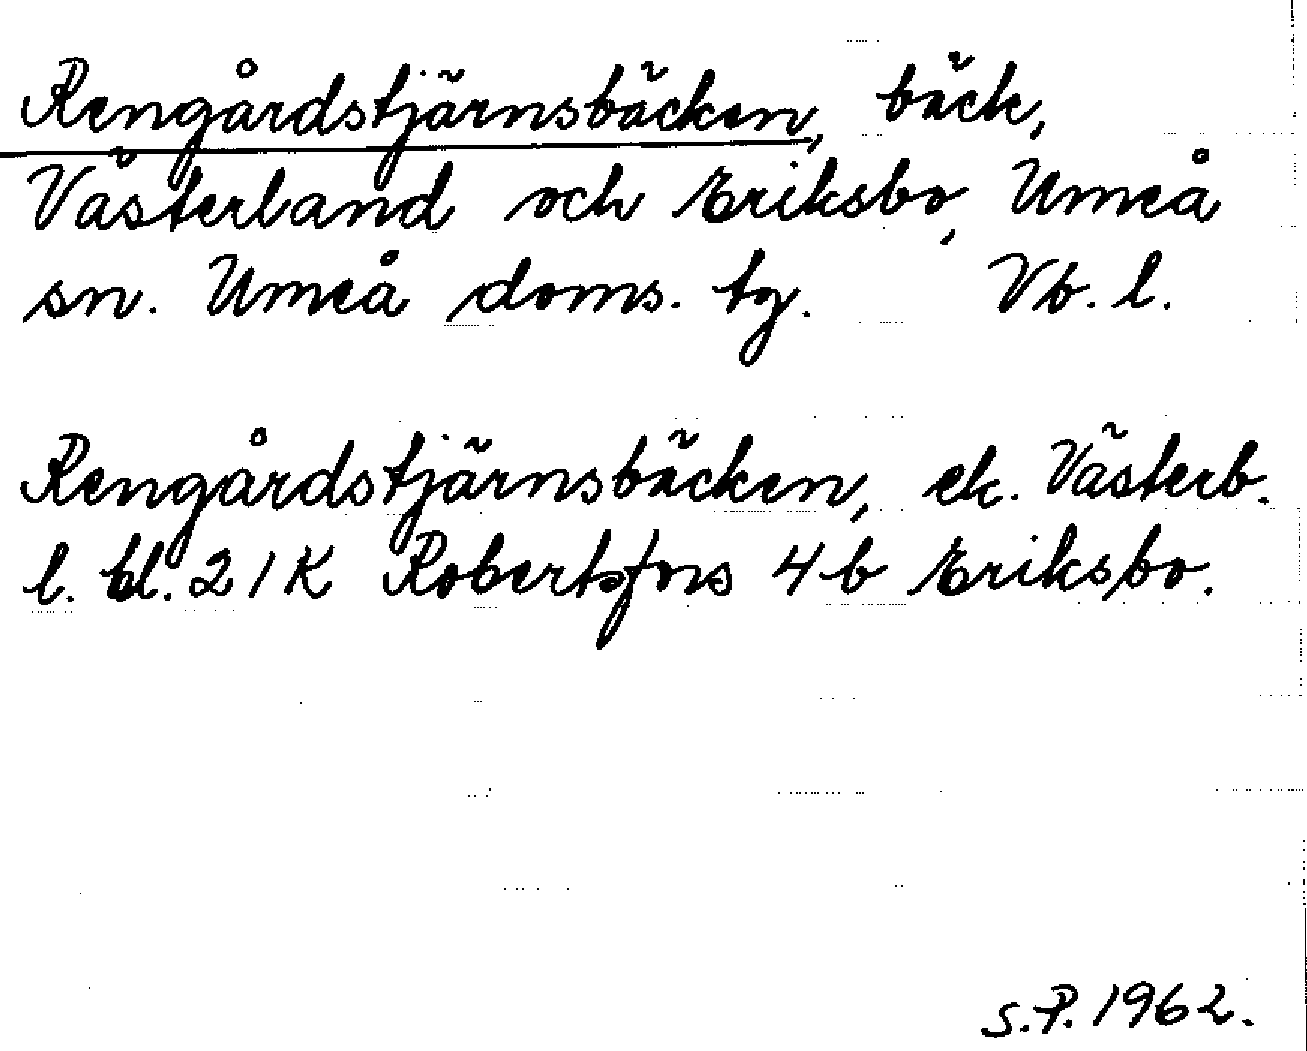 Rengårdstjärnsbäcken, bäck,
Västerland och Eriksbo, Umeå
sn. Umeå doms. tg. Vb. l.
Rengårdstjärnsbäcken, ek. Västerb.
l. bl. 21K Robertsfors 4b Eriksbo.
S.P. 1962.